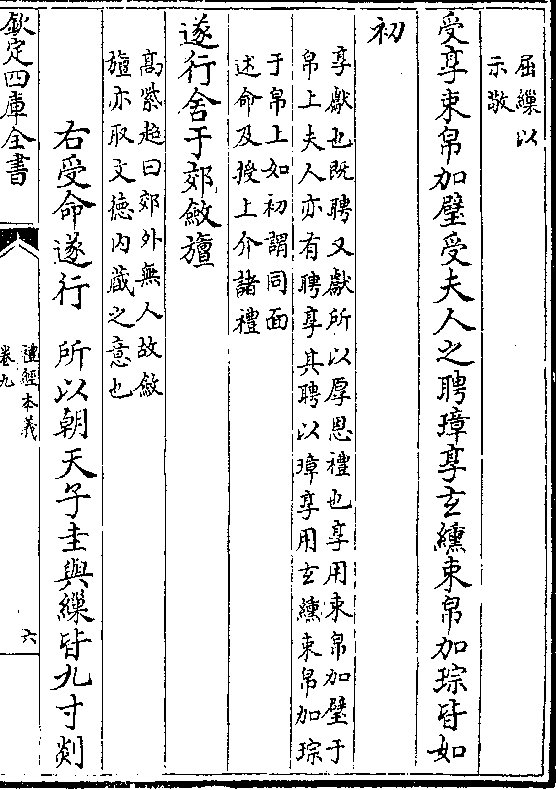 屈繅以
示敬
受享束帛加璧受夫人之聘璋享玄纁束帛加琮皆如
初
享獻也既聘又獻所以厚恩禮也享用束帛加璧于
帛上夫人亦有聘享其聘以璋享用玄纁束帛加琮
于帛上如初謂同面
述命及授上介諸禮
遂行舍于郊斂旜
高紫超曰郊外無人故斂
旜亦取文德内蔵之意也
右受命遂行 所以朝天子圭與繅皆九寸剡
欽定四庫全書
禮經本義
卷九
六